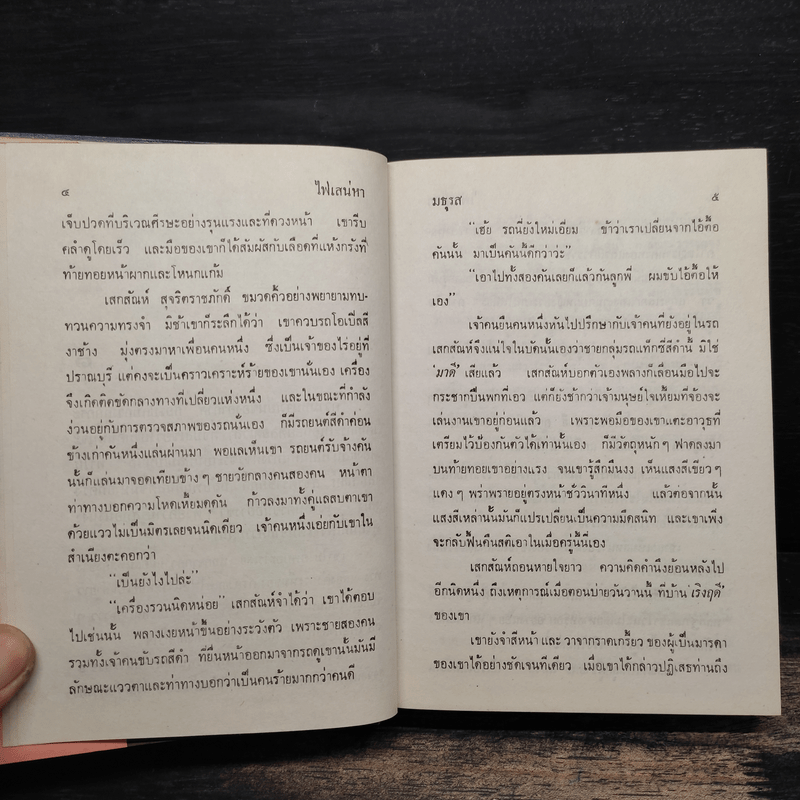 ๔ ไฟเสน่หา
เจ็บปวดที่บริเวณศีรษะอย่างรุนแรงและที่ดวงหน้า เขารีบ
คลำดูโดยเร็ว และมือของเขาก็ได้สัมผัสกับเลือดที่แห้งกรังที่
ท้ายทอยหน้าผากและโหนกแก้ม
เสกสัณห์ สุจริตราชภักดิ์ ขมวดคิ้วอย่างพยายามทบ-
ทวนความทรงจำ มิช้าเขาก็ระลึกได้ว่า เขาควบรถโอเปิ้ลสี
งาช้าง มุ่งตรงมาหาเพื่อนคนหนึ่ง ซึ่งเป็นเจ้าของไร่อยู่ที่
ปราณบุรี แต่คงจะเป็นคราวเคราะห์ร้ายของเขานั่นเอง เครื่อง
จึงเกิดติดขัดกลางทางที่เปลี่ยวแห่งหนึ่ง และในขณะที่กำลัง
ง่วนอยู่กับการตรวจสภาพของรถนั่นเอง ก็มีรถยนต์สีดำค่อน
ข้างเก่าคันหนึ่งแล่นผ่านมา พอแลเห็นเขา รถยนต์รับจ้างคัน
นั้นก็แล่นมาจอดเทียบข้าง ๆ ชายวัยกลางคนสองคน หน้าตา
ท่าทางบอกความโหดเหี้ยมดุดัน ก้าวลงมาทั้งคู่แลสบตาเขา
ด้วยแววไม่เป็นมิตรเลยจนนิดเดียว เจ้าคนหนึ่งเอ่ยกับเขาใน
สำเนียงตะคอกว่า
“เป็นยังไงไปล่ะ”
“เครื่องรวนนิดหน่อย” เสกสัณห์จำได้ว่า เขาได้ตอบ
ไปเช่นนั้น พลางเงยหน้าขึ้นอย่างระวังตัว เพราะชายสองคน
รวมทั้งเจ้าคนขับรถสีดำ ที่ยื่นหน้าออกมาจากรถดูเขานั้นมันมี
ลักษณะแววตาและท่าทางบอกว่าเป็นคนร้ายมากกว่าคนดี
มธุรส ๕
“เฮ้ย รถนี่ยังใหม่เอี่ยม ข้าว่าเราเปลี่ยนจากไอ้ตื้อ
คันนั้น มาเป็นคันนี้ดีกว่าว่ะ”
“เอาไปทั้งสองคันเลยก็แล้วกันลูกพี่ ผมขับไอ้ตื้อให้
เอง”
เจ้าคนยืนคนหนึ่งหันไปปรึกษากับเจ้าคนที่ยังอยู่ในรถ
เสกสัณห์จึงแน่ใจในบัดนั้นเองว่าชายกลุ่มรถแท็กซี่สีดำนี้ มิใช่
‘มาดี’ เสียแล้ว เสกสัณห์บอกตัวเองพลางก็เลื่อนมือไปจะ
กระชากปืนพกที่เอว แต่ก็ยังช้ากว่าเจ้ามนุษย์ใจเหี้ยมที่จ้องจะ
เล่นงานเขาอยู่ก่อนแล้ว เพราะพอมือของเขาแตะอาวุธที่
เตรียมไว้ป้องกันตัวได้เท่านั้นเอง ก็มีวัตถุหนัก ๆ ฟาดลงมา
บนท้ายทอยเขาอย่างแรง จนเขารู้สึกมึนงง เห็นแสงสีเขียว ๆ
แดง ๆ พร่าพรายอยู่ตรงหน้าชั่ววินาทีหนึ่ง แล้วต่อจากนั้น
แสงสีเหล่านั้นมันก็แปรเปลี่ยนเป็นความมืดสนิท และเขาเพิ่ง
จะกลับฟื้นคืนสติเอาในเมื่อครู่นี้นี่เอง
เสกสัณห์ถอนหายใจยาว ความคิดคำนึงย้อนหลังไป
อีกนิดหนึ่ง ถึงเหตุการณ์เมื่อตอนบ่ายวานนี้ ที่บ้าน ‘เริงฤดี’
ของเขา
เขายังจำสีหน้า และวาจากราดเกรี้ยว ของผู้เป็นมารดา
ของเขาได้อย่างชัดเจนทีเดียว เมื่อเขาได้กล่าวปฏิเสธท่านถึง